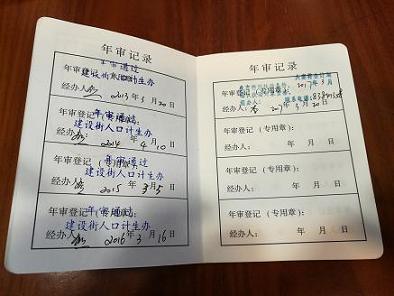 年审记录
年审通过
年审登记(专用章):
建设街人口计生办
经办人:
2013年3月20日
年审通过
年审登记(专用章):
建设街人口计生办
经办人:
2014年4月10日
年审通过
年审登记(专用章):
建设街人口计生办
经办人:
2015年3月5日
年审通过
年审登记(专用章):
建设街人口计生办
经办人:
2016年3月16日
年审记录
年审登记
经办人:
2017年3月20日
年审登记(专用章):
经办人: 年 月 日
年审登记(专用章):
经办人: 年 月 日
年审登记(专用章):
经办人: 年 月 日